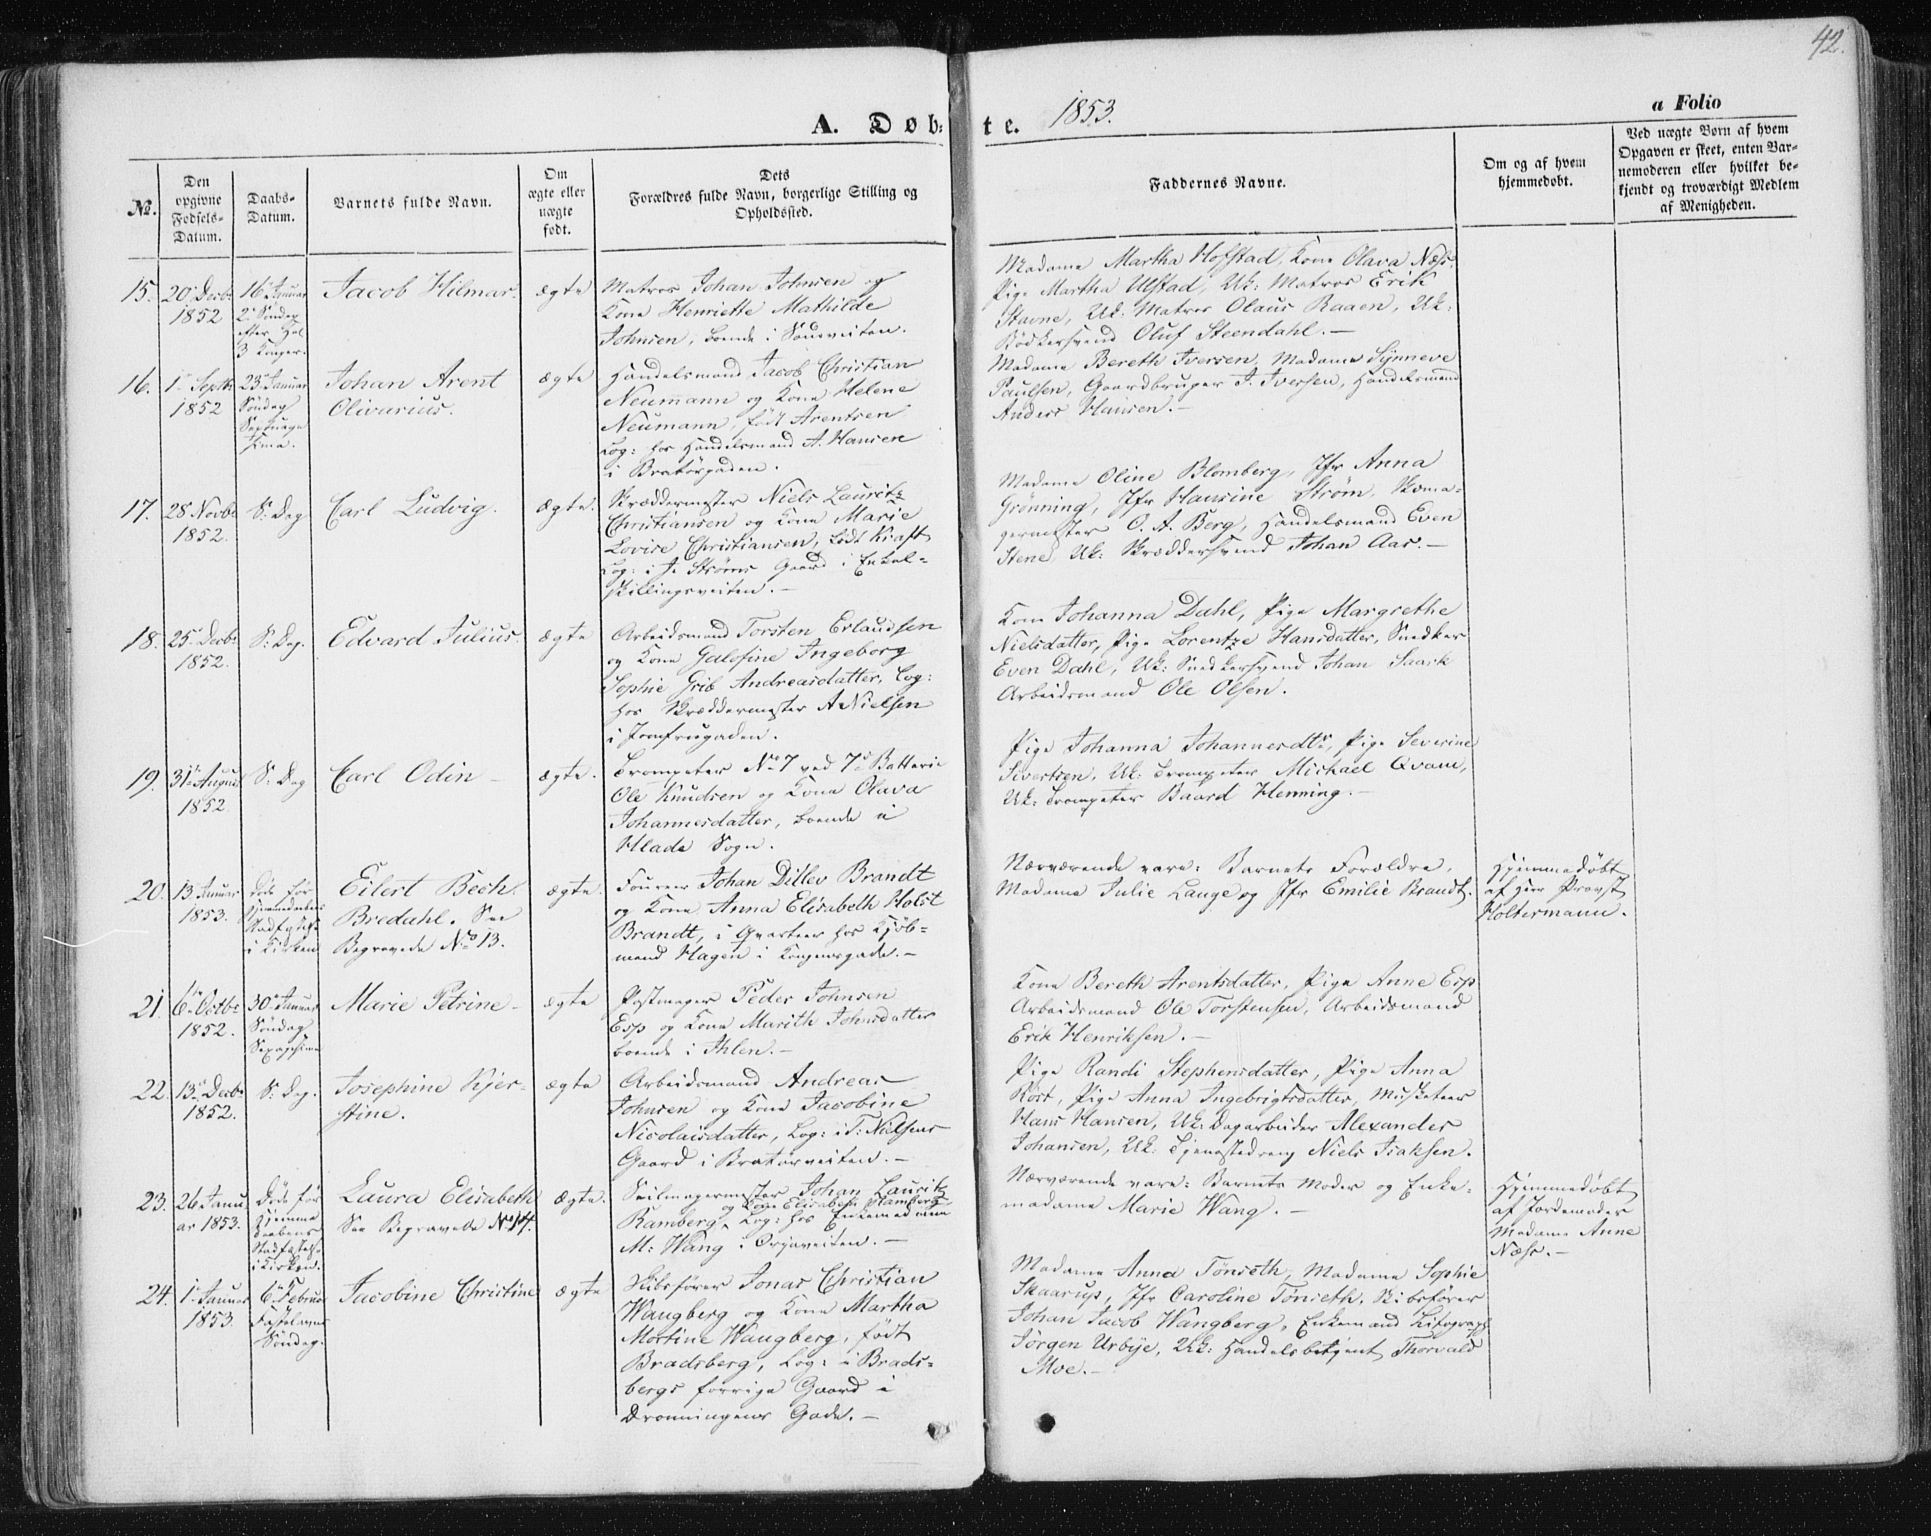 42.
A. Døb:
te. 1853.
a Folio
№.
Den opgivne Fødsels-Datum.
Daabs-Datum.
Barnets fulde Navn.
Om ægte eller uægte født.
Dets Forældres fulde Navn, borgerlige Stilling og Opholdssted.
Faddernes Navne.
Om og af hvem hjemmedøbt.
Ved uægte Børn af hvem Opgaven er skeet, enten Barnemoderen eller hvilket bekjendt og troværdigt Medlem af Menigheden.
15. 20 Decbr 1852
16 Januar 2 Søndag efter Hel 3 Konger.
Jacob Hilmar.
ægte
Matros Johan Johnsen og
Kone Henriette Mathilde
Johnsen, boende i Sandveiten.
Madame Martha Hofstad, Kone Olava Næss.
Pige Martha Ulstad, Uk: Matros Erik
Stavne, Uk: Matros Olaus Raaen, Uk:
Bødkersvend Oluf Steendahl.—
16. 1 Septbr 1852
23 Januar Søndag Septuagesima.
Johan Arent
Olivarius.
ægte
Handelsmand Jacob Christian
Neumann og Kone Helene
Neumann, født Arentsen
Log: hos Handelsmand A. Hansen
i Bratørgaden.
Madame Bereth Iversen, Madame Synneve
Paulsen, Gaardbruger J. Iversen, Handelsmand
Anders Hansen.—
17. 28 Novbr 1852.
S: Dag
Carl Ludvig.
ægte.
Skræddermester Niels Lauritz
Christiansen og Kone Marie
Lovise Christiansen, født Kraft
Log: i J. Strøms Gaard i Enkel-
skillingsveiten.—
Madame Oline Blomberg, Jfr Anna
Grønning, Jfr Hansine Strøm, Skoma-
germester O. A. Berg, Handelsmand Even
Stene, Uk: Skræddersvend Johan Aas.—
18. 25 Decbr 1852.
S: Dag.
Edvard Julius.
ægte
Arbeidsmand Torsten Erlandsen
og Kone Galosine Ingeborg
Sophie Grib Andreasdatter, Log:
hos Skræddermester A Nielsen
i Jomfrugaden.
Kone Johanna Dahl, Pige Margrethe
Nielsdatter, Pige Lorentze Hansdatter, Snedker
Even Dahl, Uk: Snedkersvend Johan
Arbeidsmand Ole Olsen.
19. 31 August 1852
S: Dag
Carl Odin —
ægte.
Trompeter No 7 ved 7de Batterie
Ole Knudsen og Kone Olava
Johannesdatter, boende i
Hlade Sogn.
Pige Johanna Johannesdtr, Pige Severine
Sivertsen, Uk: Trompeter Michael Qvam,
Uk: Trompeter Baard Henning.—
20. 13 Januar 1853.
Døde før Hjemmedaabens Stadfæstelse i Kirken
Eilert Bech.
Bredahl. See
Begravede No 13.
ægte.
Foureer Johan Ditlev Brandt
og Kone Anna Elisabeth Holst
Brandt, i Qvarteer hos Kjøb-
mand Hagen i Kongensgade.—
Nærværende vare: Barnets Forældre,
Madame Julie Lange og Jfr Emilie Brandt.
Hjemmedøbt
af Herr Provst
Holtermann.
21. 6 Octbr 1852.
30 Januar Søndag Sexagesima
Marie Petrine —
ægte
Postmager Peder Johnsen
Esp og Kone Marith Johnsdatter
boende i Ihlen.—
Kone Bereth Arentsdatter, Pige Anne Esp
Arbeidsmand Ole Torstensen, Arbeidsmand
Erik Henriksen.—
22. 13 Decbr 1852.
S: Dag.
Josephine Kjer-
stine.
ægte
Arbeidsmand Andreas
Johnsen og Kone Jacobine
Nicolaisdatter, Log: i T: Nielsens
Gaard i Bratørveiten.—
Pige Randi Stephensdatter, Pige Anna
Rost, Pige Anna Ingebrigtsdatter, Musketeer
Hans Hansen, Uk: Dagarbeider Alexander
Johansen, Uk: Tjenestedreng Niels Isaksen.
23. 26 Januar 1853.
Døde før Hjemmedaabens Stadfæstelse i Kirken.
Laura Elisabeth
See Begravede No 14.
ægte.
Seilmagermester Johan Lauritz
og Kone Elisabeth Ramberg
Ramberg, Log: hos Enkemadame
M: Wang i Ørjaveiten.—
Nærværende vare: Barnets Moder og Enke-
madame Marie Wang.—
Hjemmedøbt
af Jordemoder
Madame Anne
Næss.—
24. 1 Januar 1853.
6 Februar Fastelavns Søndag.
Jacobine Christine
ægte
Skibsfører Jonas Christian
Wangberg og Kone Martha
Martine Wangberg, født
Bradsberg, Log: i Brads-
bergs forrige Gaard i
Dronningens Gade.—
Madame Anna Tønseth, Madame Sophie
Skaarup, Jfr Caroline Tønseth, Skibsfører
Johan Jacob Wangberg, Enkemand Lithograph
Jørgen Urbye, Uk: Handelsbetjent Thorvald
Moe.—